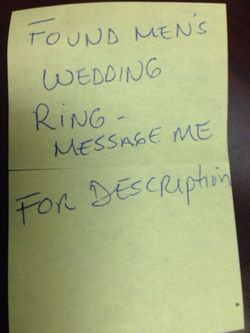 FOUND MEN'S
WEDDING
RING -
MESSAGE ME
FOR DESCRIPTION